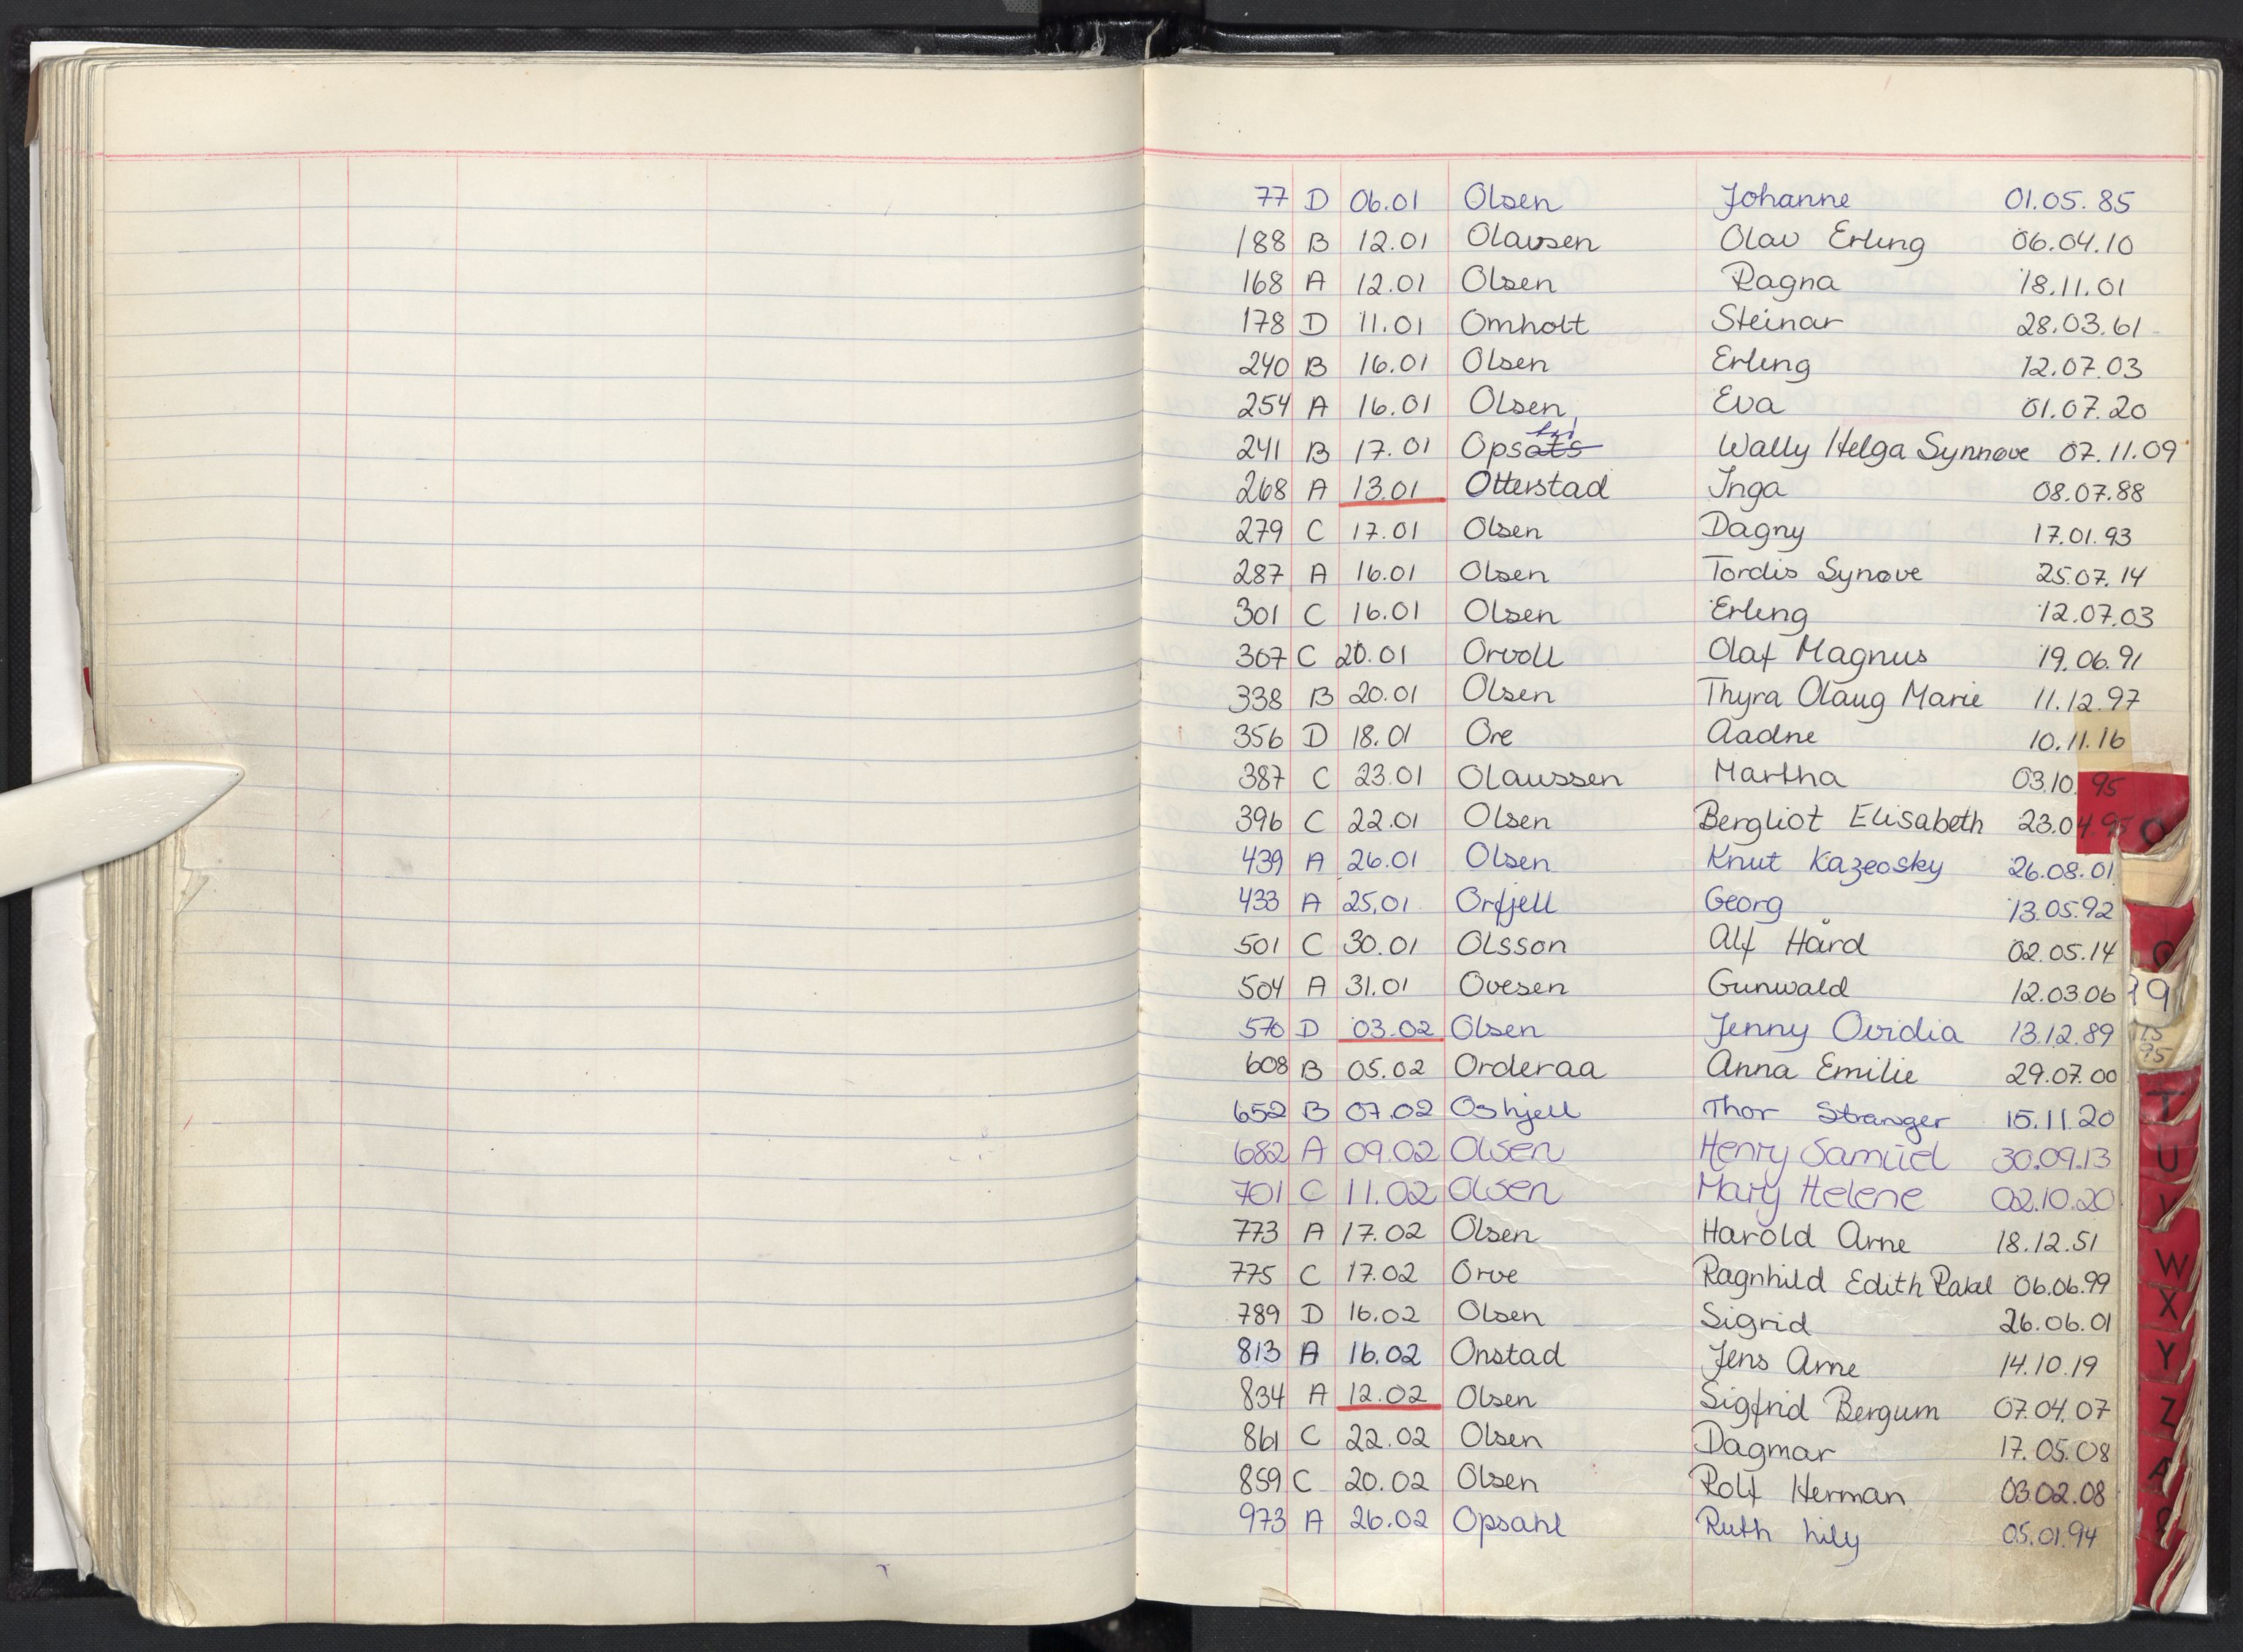 77 D 06.01 Olsen Johanne 01.05.85
188 B 12.01 Olavsen Olav Erling 06.04.10
168 A 12.01 Olsen Ragna 18.11.01
178 D 11.01 Omholt Steinar 28.03.61
240 B 16.01 Olsen Erling 12.07.03
254 A 16.01 Olsen Eva 01.07.20
241 B 17.01 Opsats hl Wally Helga Synnøve 07.11.09
268 A 13.01 Otterstad Inga 08.07.88
279 C 17.01 Olsen Dagny 17.01.93
287 A 16.01 Olsen Tordis Synøve 25.07.14
301 C 16.01 Olsen Erling 12.07.03
307 C 20.01 Orvoll Olaf Magnus 19.06.91
338 B 20.01 Olsen Thyra Olaug Marie 11.12.97
356 D 18.01 Ore Aadne 10.11.16
387 C 23.01 Olaussen Martha 03.10.95
396 C 22.01 Olsen Bergliot Elisabeth 23.04.95 O
439 A 26.01 Olsen Knut Kazeosky 26.08.01
433 A 25.01 Orfjell Georg 13.05.92
501 C 30.01 Olsson Alf Hård 02.05.14
504 A 31.01 Ovesen Gunwald 12.03.06
570 D 03.02 Olsen Jenny Ovidia 13.12.89
608 B 05.02 Orderaa Anna Emilie 29.07.00
652 B 07.02 Oshjell Thor Stranger 15.11.20 T
682 A 09.02 Olsen Henry Samuel 30.09.13 U
701 C 11.02 Olsen Mary Helene 02.10.20 V
773 A 17.02 Olsen Harold Arne 18.12.51 W
775 C 17.02 Orve Ragnhild Edith Rakel 06.06.99 X
789 D 16.02 Olsen Sigrid 26.06.01
813 A 16.02 Onstad Jens Arne 14.10.19 Y
834 A 12.02 Olsen Sigfrid Bergum 07.04.07 Z
861 C 22.02 Olsen Dagmar 17.05.08
859 C 20.02 Olsen Rolf Herman 03.02.08
973 A 26.02 Opsahl Ruth Lily 05.01.94